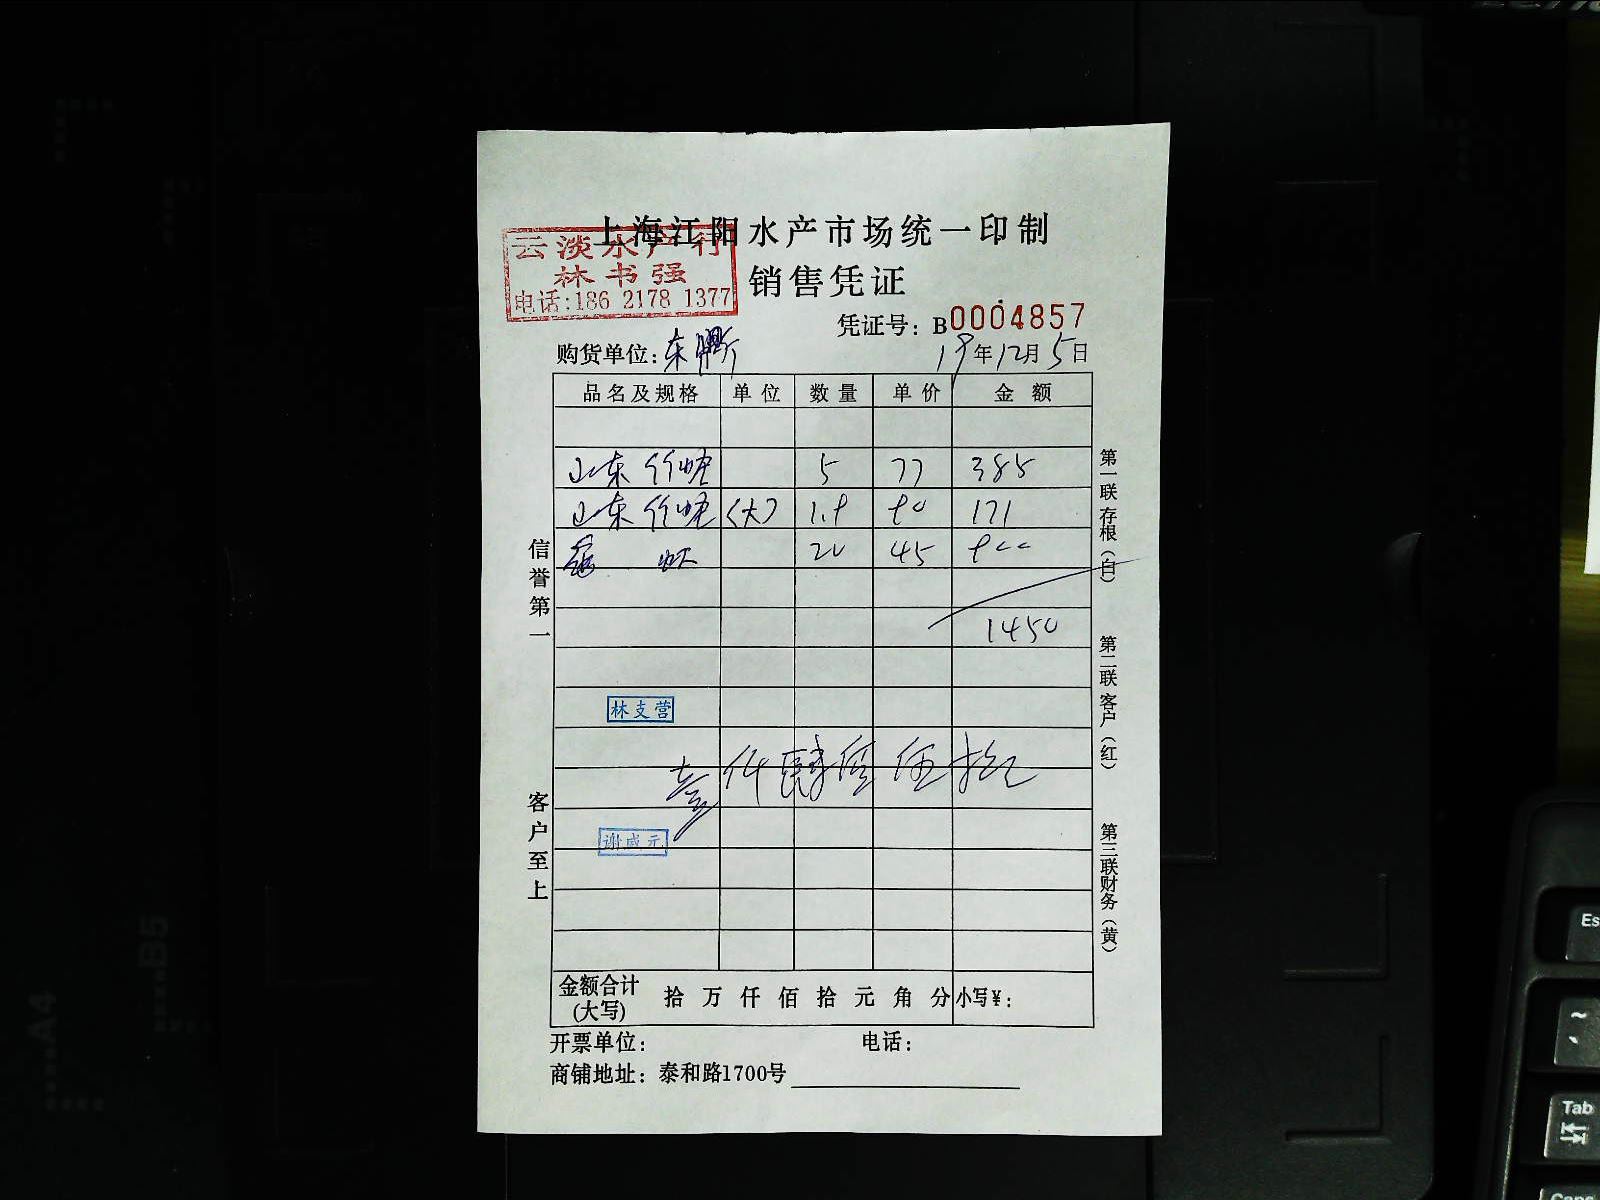 上海江阳水产市场统一印制
云淡水产行
林书强
电话:186 2178 1377
销售凭证
凭证号: B0004857
购货单位: 东
19年12月5日
品名及规格 单位 数量 单价 金额
山东竹蛏 5 77 385
山东竹蛏(大) 1.9 90 171
20 45 900
1450
林支营
壹仟肆佰伍拾元
谢威元
金额合计(大写) 拾 万 仟 佰 拾 元 角 分 小写¥:
开票单位: 电话:
商铺地址: 泰和路1700号
信誉第一
客户至上
第一联 存根(白)
第二联 客户(红)
第三联 财务(黄)
A4
B5
Esc
~
Tab
Caps